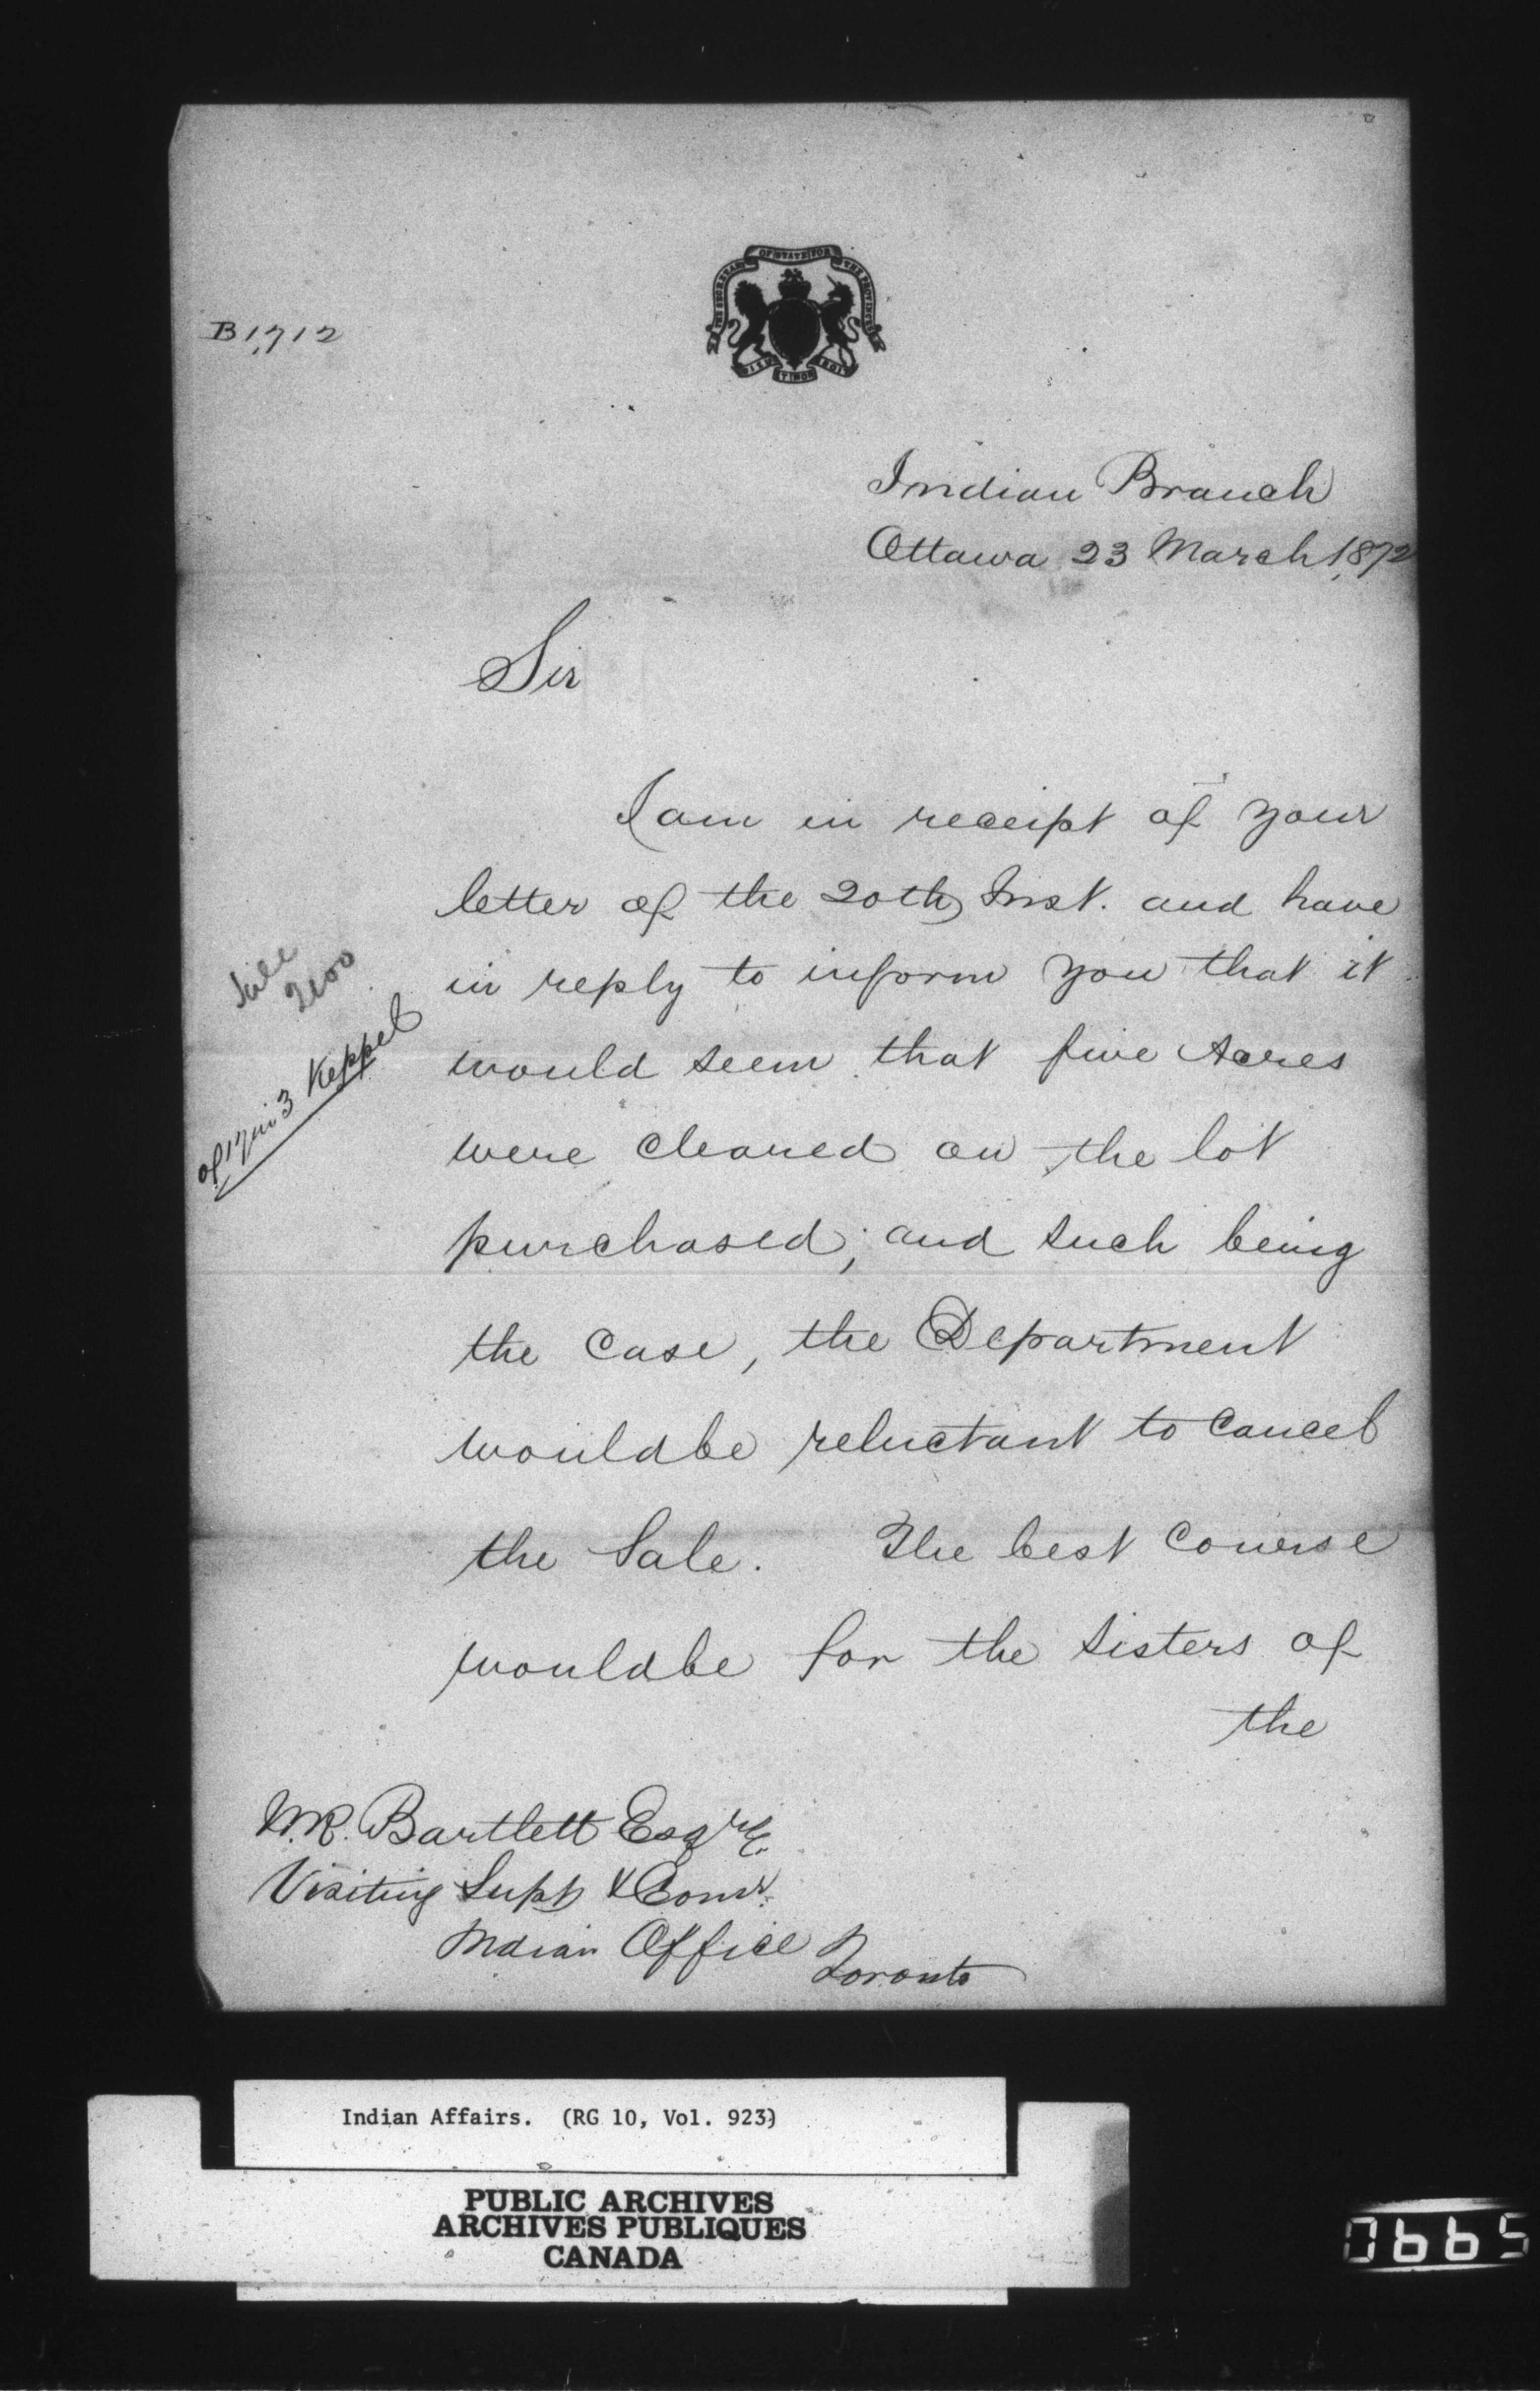 THE SECRETARY OF STATE FOR THE PROVINCES
DIEU
B1,712
Indian Branch
Ottawa 23 March 1,872
Sir
I am in receipt of your
letter of the 20th Inst. and have
in reply to inform you that it
would seem that five Acres
were cleared on the lot
purchased, and such being
the case, the Department
would be reluctant to cancel
the Sale. The best course
would be for the sisters of
the
Sale
2100
of 17 in 3 Keppel
W.R. Bartlett Esqre.
Visiting Supt & Comr.
Indian Office
Toronto
Indian Affairs. (RG 10, Vol. 923)
PUBLIC ARCHIVES
ARCHIVES PUBLIQUES
CANADA
0665